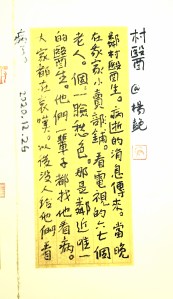 村醫 楊鍵
鄰村醫生。病逝的消息傳來。當晚
在家家小賣部鋪。看電視的六七個
老人。個個臉愁色。那是鄰近唯一
的醫生。他們一輩子都找他看病。
人家都在哀嘆。以後沒人給他們看
病……
2020.12.25